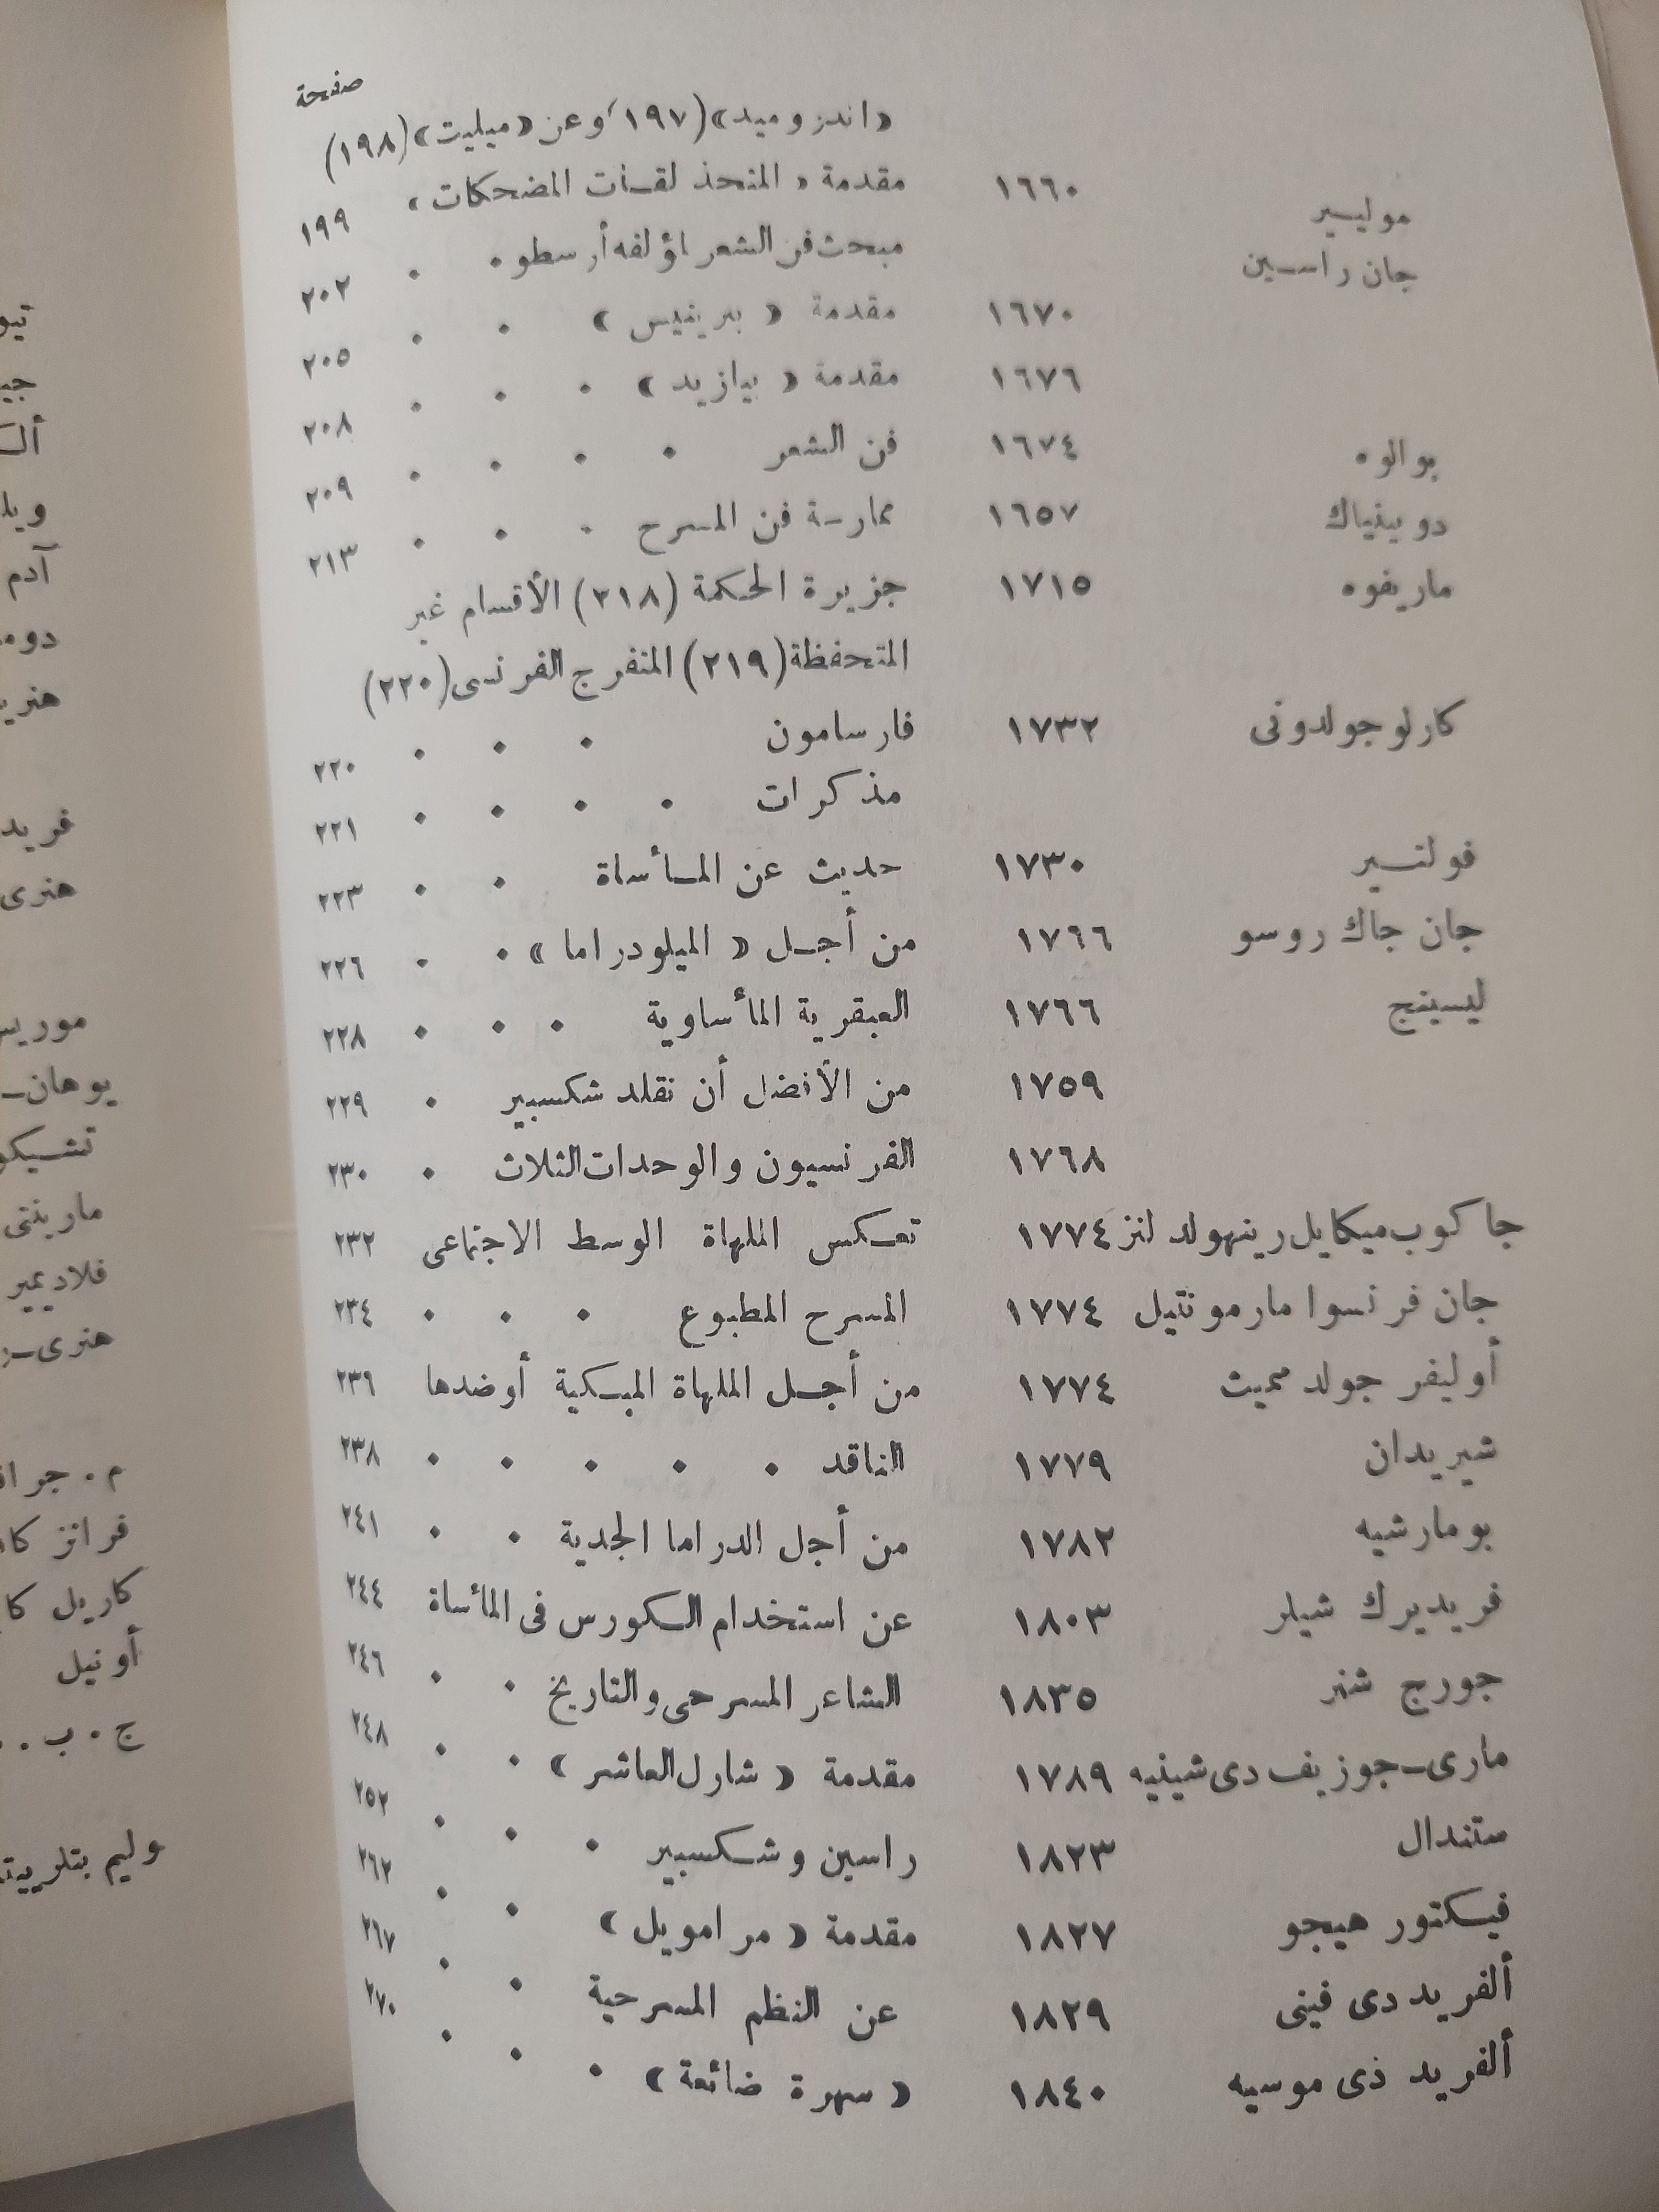 صفحة
«اندروميد» (١٩٧) وعن «ميليت» (١٩٨)
موليير ١٦٦٠ مقدمة «المتحذلقات المضحكات» ١٩٩
جان راسين مبحث فن الشعر لمؤلفه أرسطو . . ٢٠٢
١٦٧٠ مقدمة «برينيس» . . ٢٠٥
١٦٧٦ مقدمة «بيازيد» . . . ٢٠٨
بوالوه ١٦٧٤ فن الشعر . . . . ٢٠٩
دوبينياك ١٦٥٧ ممارسة فن المسرح . . . ٢١٣
ماريفوه ١٧١٥ جزيرة الحكمة (٢١٨) الأقسام غير
المتحفظة (٢١٩) المتفرج الفرنسى (٢٢٠)
كارلو جولدونى ١٧٣٢ فارسامون . . . ٢٢٠
مذكرات . . . . ٢٢١
فولتير ١٧٣٠ حديث عن المأساة . . ٢٢٣
جان جاك روسو ١٧٦٦ من أجل «الميلودراما» . . ٢٢٦
ليسينج ١٧٦٦ العبقرية المأساوية . . . ٢٢٨
١٧٥٩ من الأفضل أن نقلد شكسبير . ٢٢٩
١٧٦٨ الفرنسيون والوحدات الثلاث . ٢٣٠
جاكوب ميكايل رينهولد لنز ١٧٧٤ تعكس الملهاة الوسط الاجتماعى ٢٣٢
جان فرنسوا مارمونتيل ١٧٧٤ المسرح المطبوع . . . ٢٣٤
أوليفر جولد سميث ١٧٧٤ من أجل الملهاة المبكية أو ضدها ٢٣٦
شيريدان ١٧٧٩ الناقد . . . . . ٢٣٨
بومارشيه ١٧٨٢ من أجل الدراما الجدية . . ٢٤١
فريديرك شيلر ١٨٠٣ عن استخدام الكورس فى المأساة ٢٤٤
جورج شنر ١٨٣٥ الشاعر المسرحى والتاريخ . . ٢٤٦
مارى-جوزيف دى شينيه ١٧٨٩ مقدمة «شارل العاشر» . . ٢٤٨
ستندال ١٨٢٣ راسين وشكسبير . . . ٢٥٢
فيكتور هيجو ١٨٢٧ مقدمة «مرامويل» . . ٢٦٢
ألفريد دى فينى ١٨٢٩ عن النظم المسرحية . . ٢٦٧
ألفريد ذى موسيه ١٨٤٠ «سهرة ضائعة» . . . ٢٧٠
آدم
هنرى
موريس
يوهان-
مارينتى
فلاديمير
هنرى-
م . جر
فرانز
كاريل
أونيل
ج . ب . .
وليم